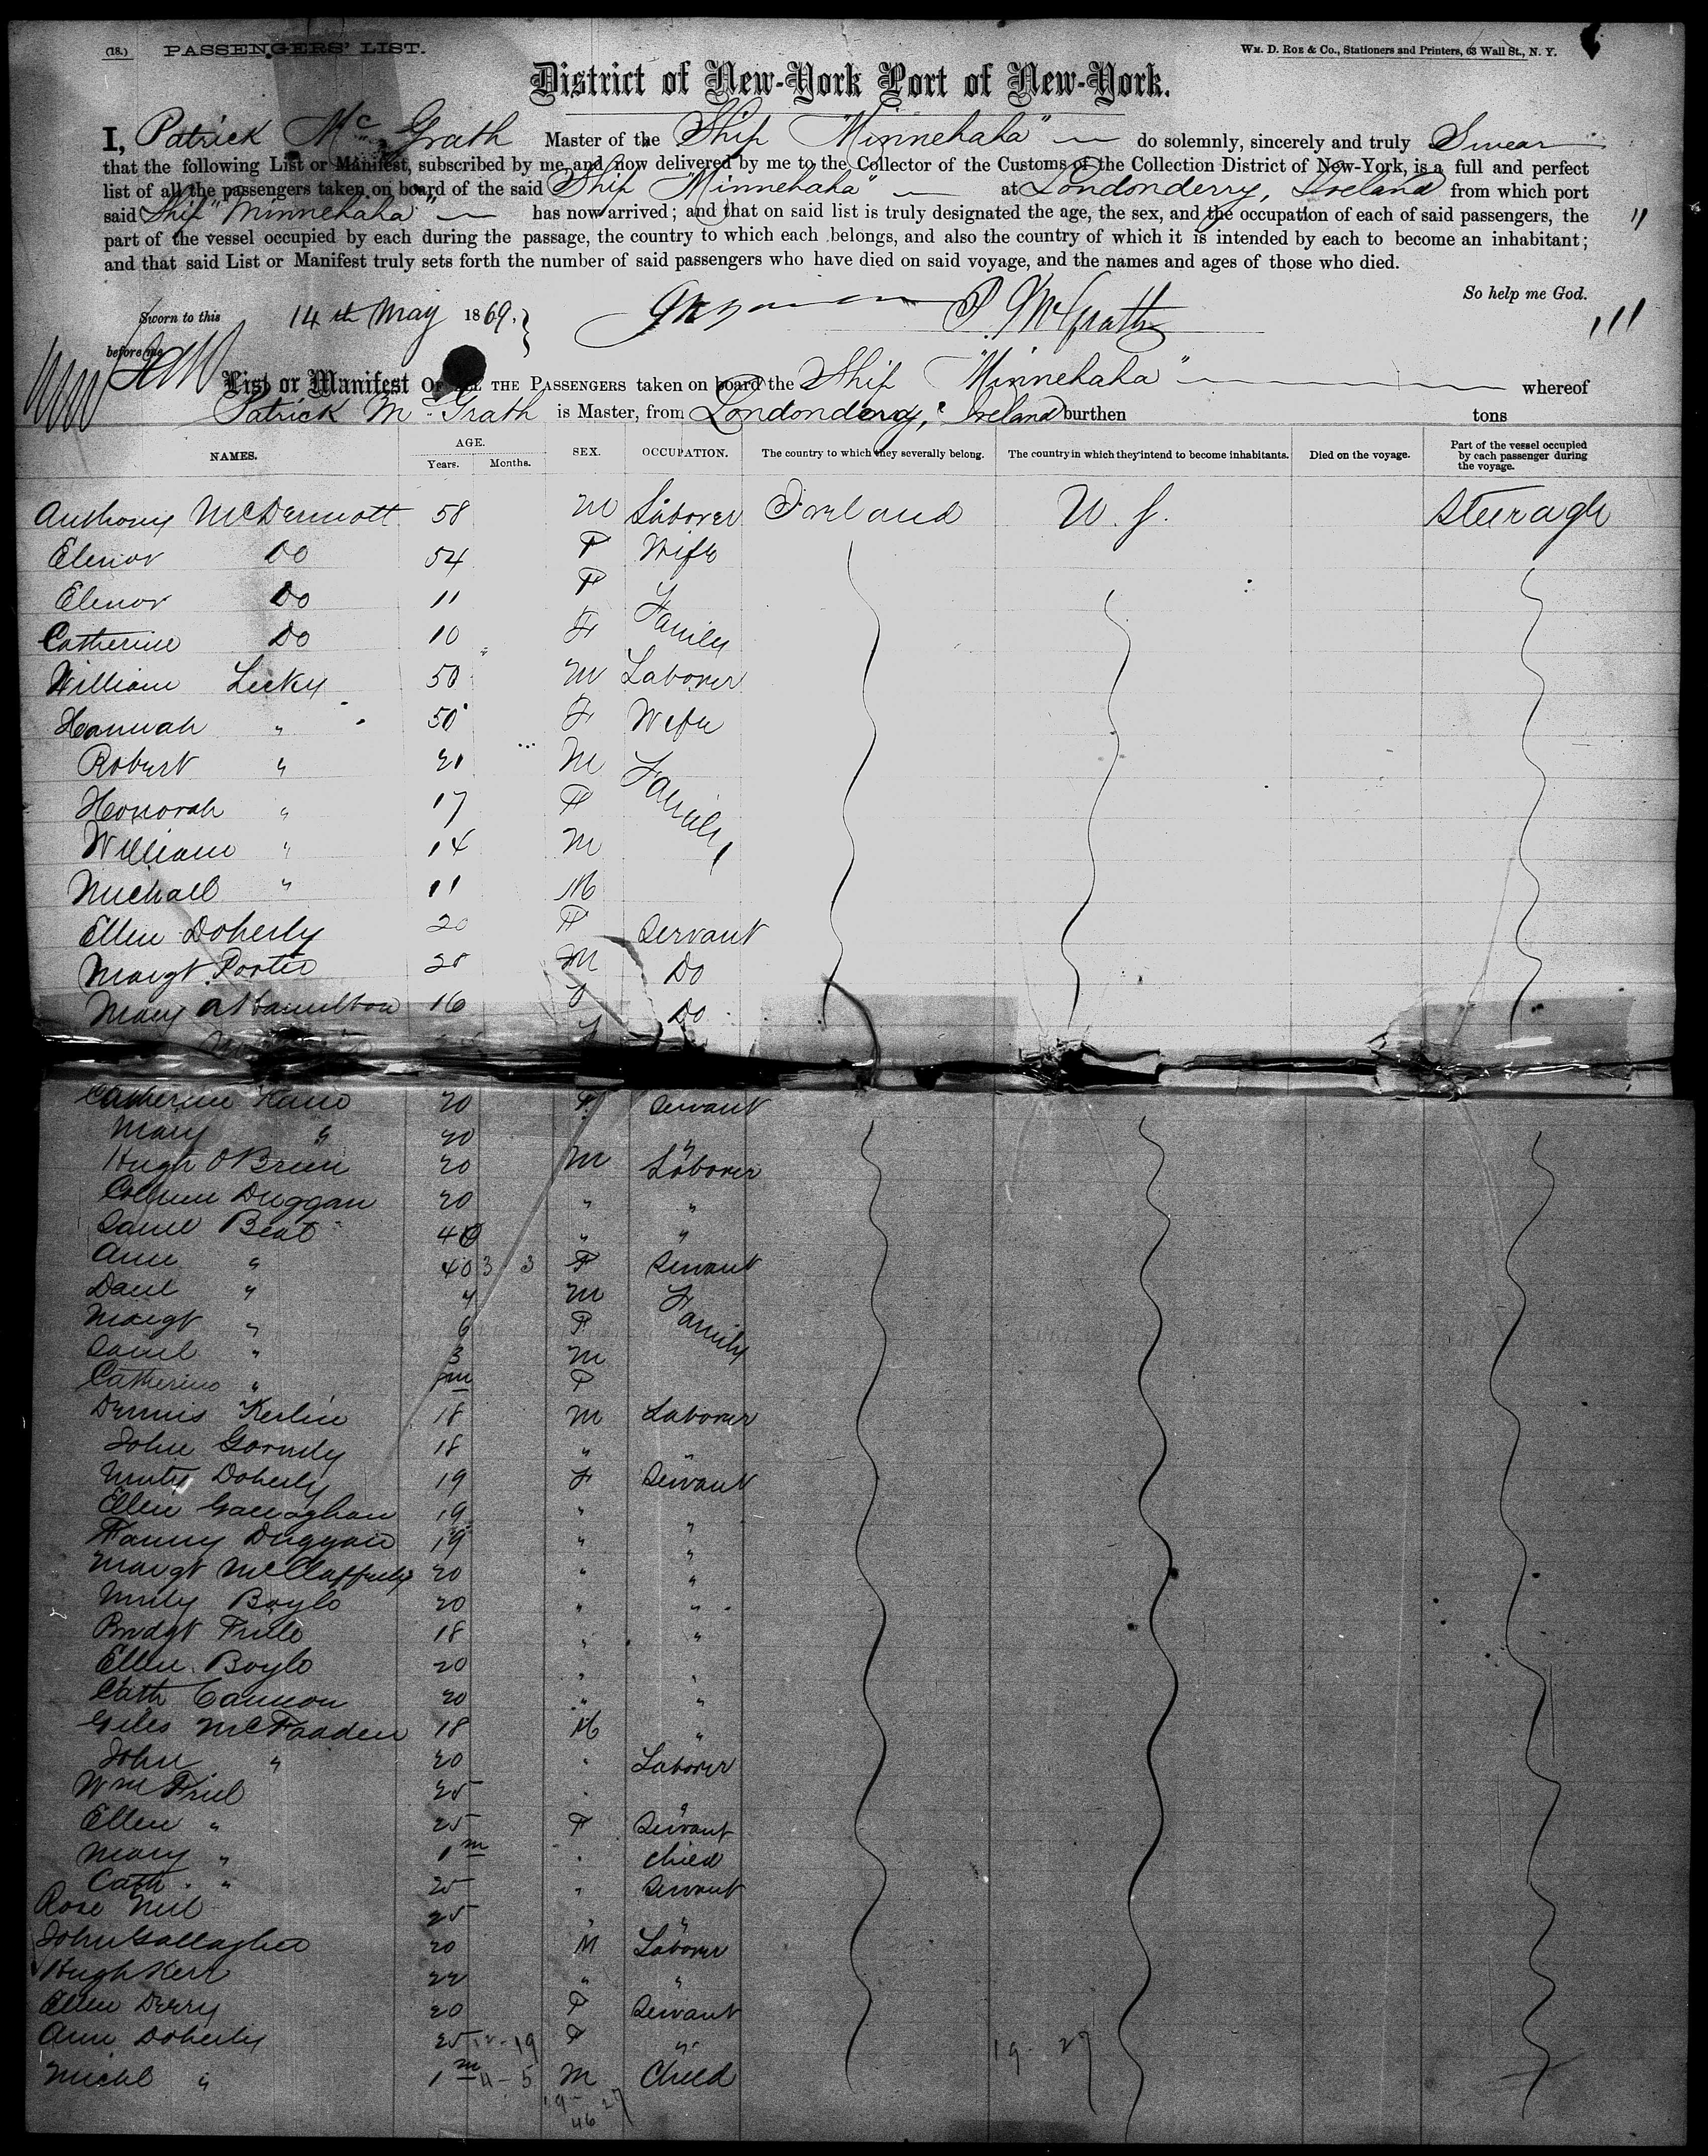 (18.) PASSENGERS' LIST. Wm. D. Roe & Co., Stationers and Printers, 63 Wall St., N. Y.
District of New-York Port of New-York.
I, Patrick McGrath Master of the Ship "Minnehaha" do solemnly, sincerely and truly Swear
that the following List or Manifest, subscribed by me, and now delivered by me to the Collector of the Customs of the Collection District of New-York, is a full and perfect
list of all the passengers taken on board of the said Ship "Minnehaha" at Londonderry, Ireland from which port
said Ship "Minnehaha" has now arrived; and that on said list is truly designated the age, the sex, and the occupation of each of said passengers, the
part of the vessel occupied by each during the passage, the country to which each belongs, and also the country of which it is intended by each to become an inhabitant;
and that said List or Manifest truly sets forth the number of said passengers who have died on said voyage, and the names and ages of those who died.
So help me God.
Sworn to this 14th May 1869. P. McGrath
before me
List or Manifest OF ALL THE PASSENGERS taken on board the Ship "Minnehaha" whereof
Patrick McGrath is Master, from Londonderry, Ireland burthen tons
NAMES. AGE. Years. Months. SEX. OCCUPATION. The country to which they severally belong. The country in which they intend to become inhabitants. Died on the voyage. Part of the vessel occupied by each passenger during the voyage.
Anthony McDermott 58 M Laborer Ireland U. S. Sturage
Elenor Do 54 F Wife
Elenor Do 11 F
Catherine Do 10 F Family
William Lecky 50 M Laborer
Hannah " 50 F Wife
Robert " 21 M Family
Honorah " 17 F
William " 14 M
Michael " 11 M
Ellen Doherty 20 F Servant
Margt Porter 25 M Do
Mary A Hamilton 16 F Do
Catherine Kane 20 F Servant
Mary " 20 "
Hugh O'Brien 20 M Laborer
Duggan 20 " "
Saml Beat 40 " "
Ann " 40 3 3 F Servant
Danl " 4 M Family
Margt " 6 F
Saml " 3 M
Catherine " F
Dennis Kerlin 18 M Laborer
John Gormly 18 " "
Doherty 19 F Servant
Ellen Gallaghan 19 " "
Fanny Duggan 19 " "
Margt McClafferty 20 " "
Boyle 20 " "
Bridgt Friele 18 " "
Ellen Boyle 20 " "
Cath Cannon 20 " "
Giles McFadden 18 M "
John " 20 " Laborer
Wm Friel 25 " "
Ellen " 25 F Servant
Mary " 1m " Child
Cath. " 25 " Servant
Rose Neil 25 " "
John Gallagher 20 M Laborer
Hugh Kerr 22 " "
Ellen Derry 20 F Servant
Ann Doherty 25 - 19 F " 19 - 27
Michl " 1m 11 - 5 M Child
19 - 27
46